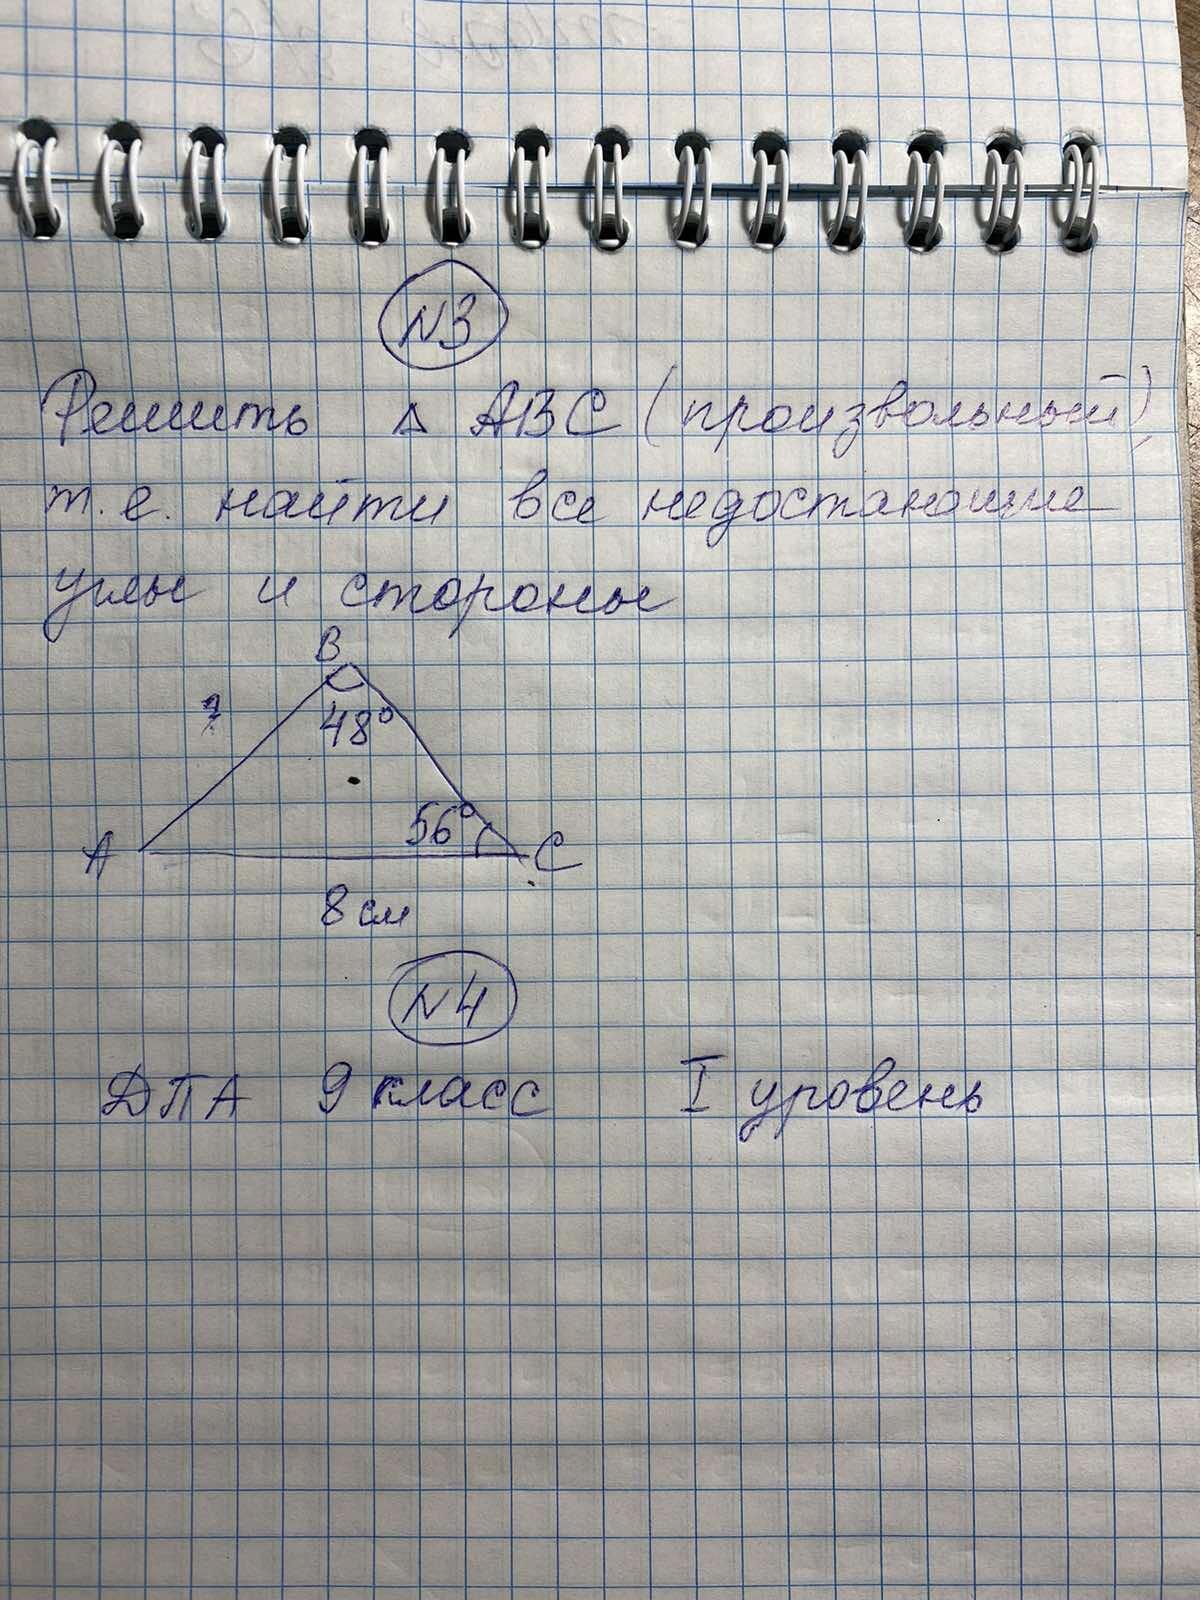 N3
Решить Δ ABC (произвольный),
т.е. найти все недостающие
углы и стороны
B
?
48°
56°
A
C
8 см
N4
ДПА 9 класс I уровень